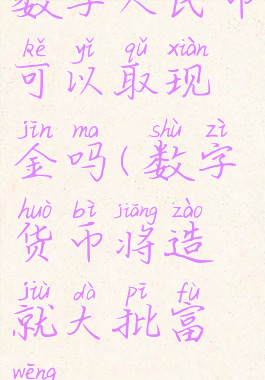 数字人民币
kě yǐ qǔ xiàn
可以取现
jīn ma shù zì
金吗(数字
huò bì jiāng zào
货币将造
jiù dà pī fù
就大批富
wēng